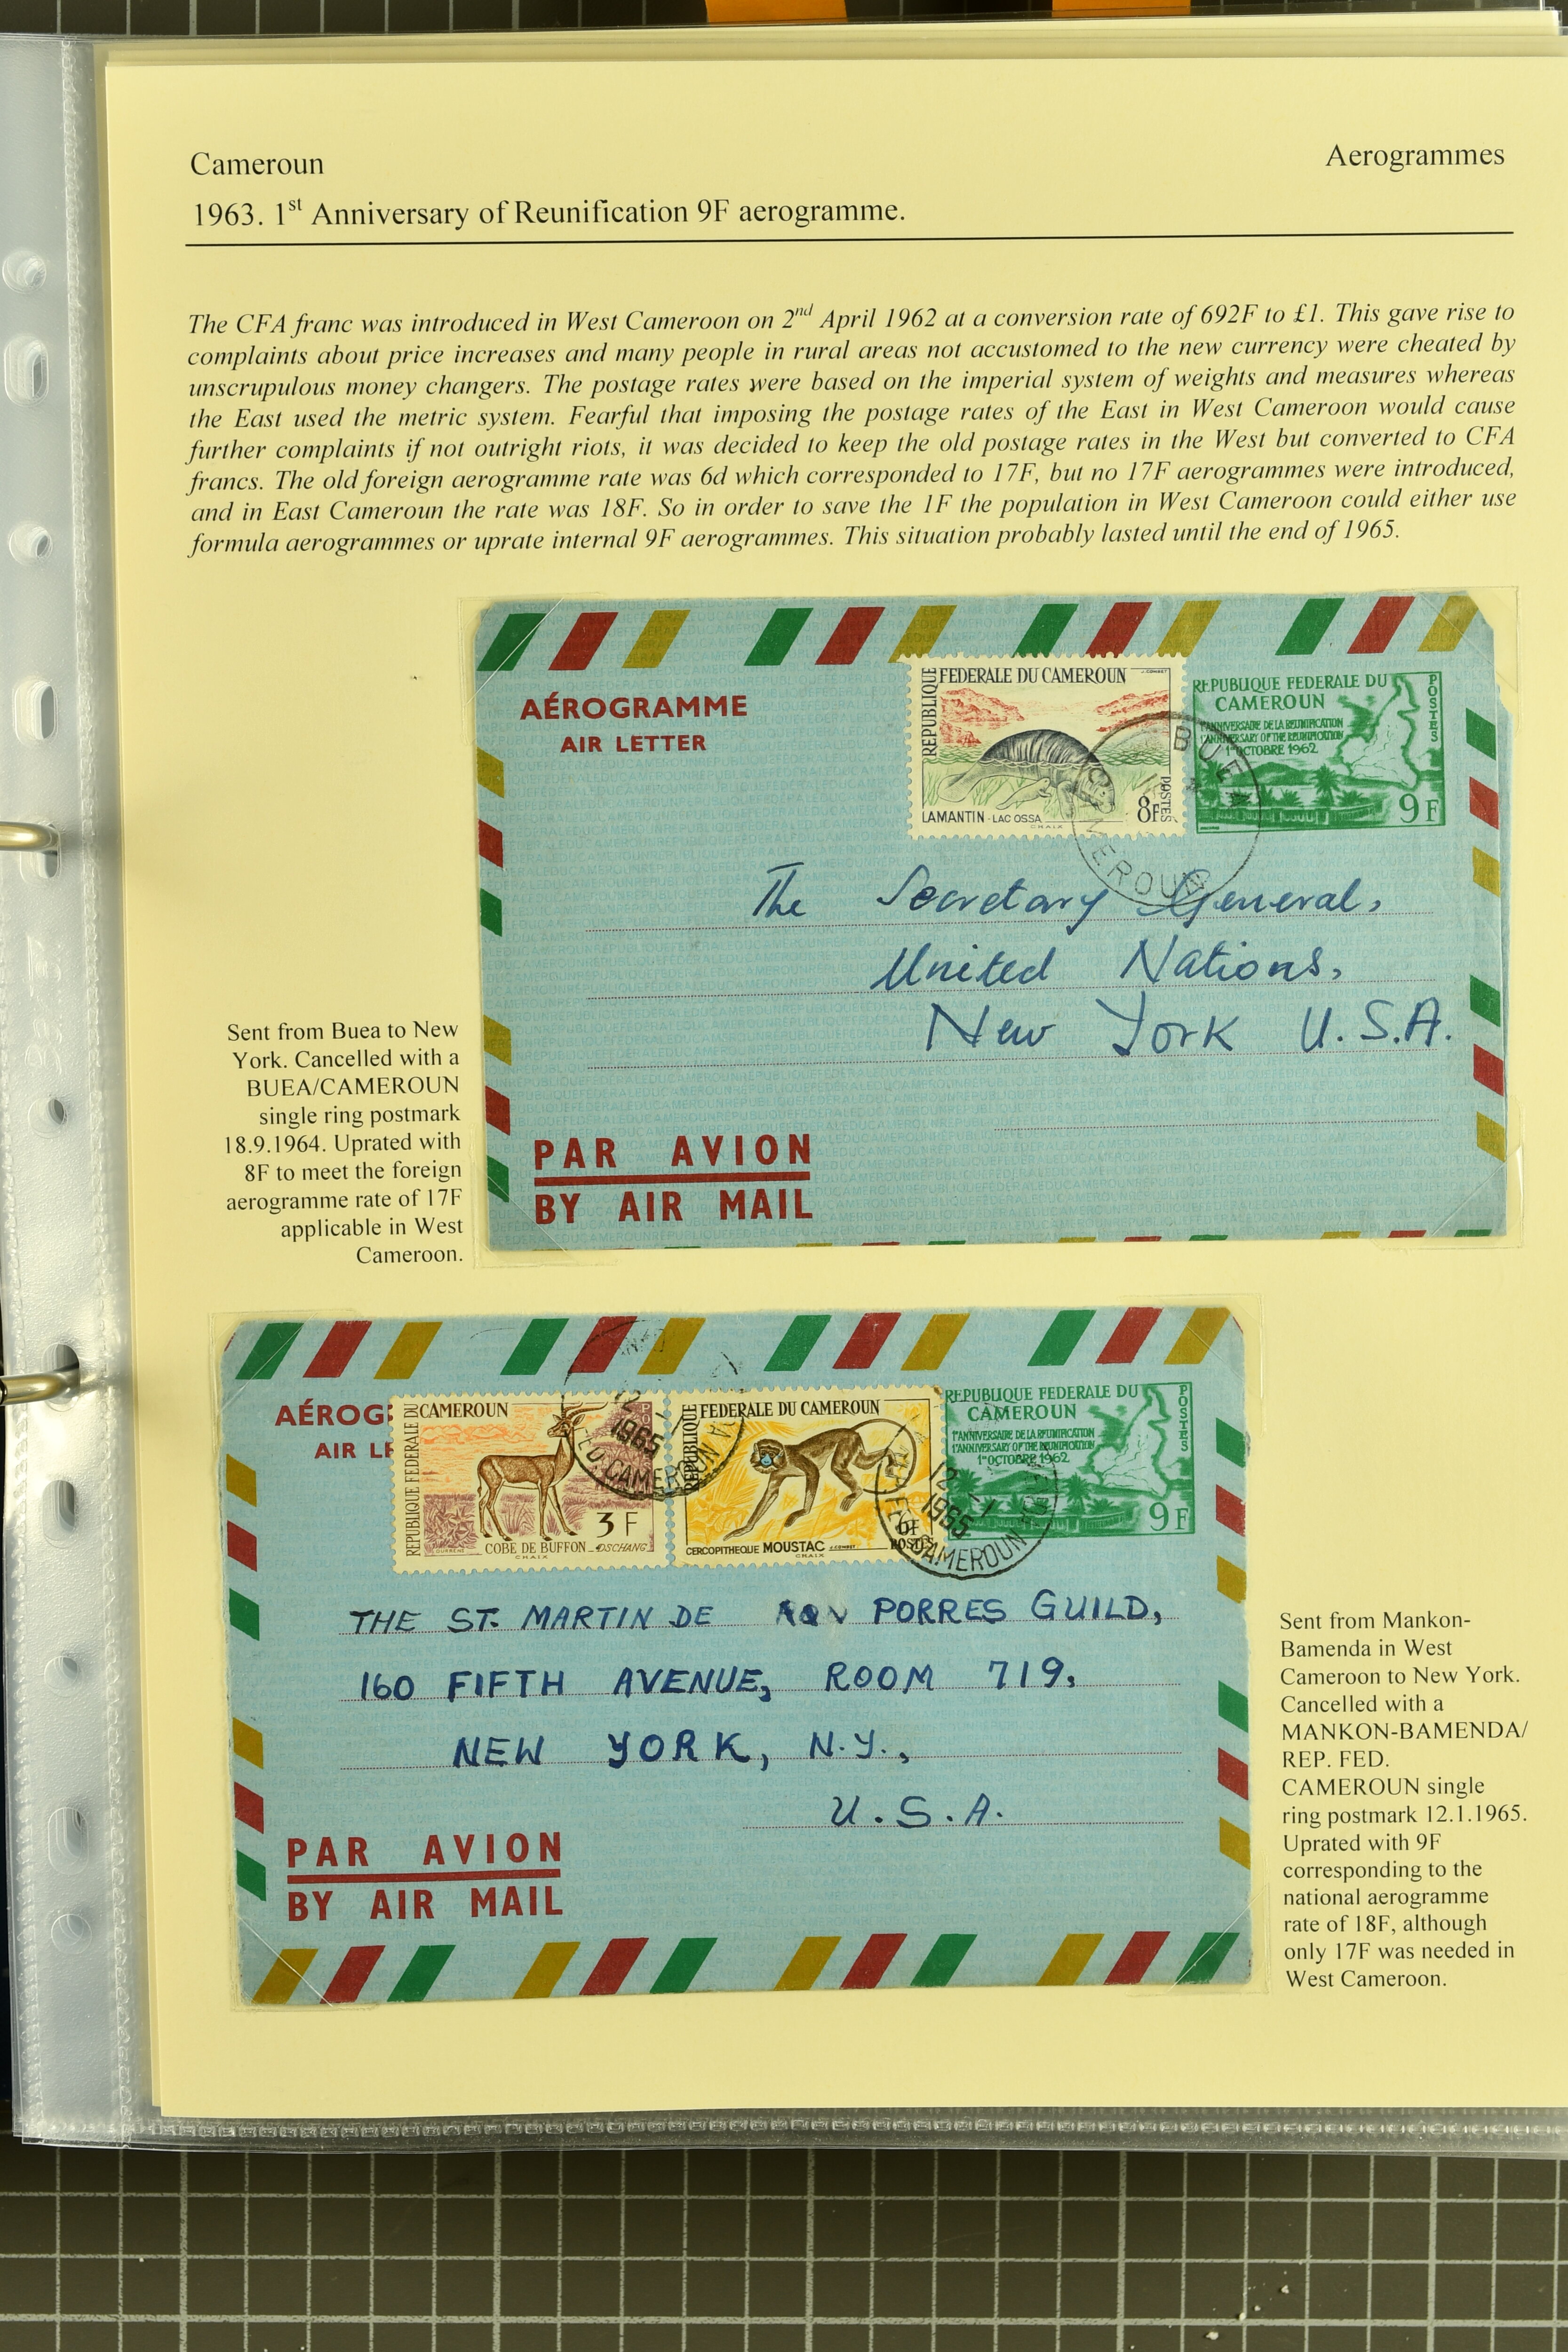 Cameroun
Aerogrammes
1963. 1st Anniversary of Reunification 9F aerogramme.
The CFA franc was introduced in West Cameroon on 2nd April 1962 at a conversion rate of 692F to £1. This gave rise to
complaints about price increases and many people in rural areas not accustomed to the new currency were cheated by
unscrupulous money changers. The postage rates were based on the imperial system of weights and measures whereas
the East used the metric system. Fearful that imposing the postage rates of the East in West Cameroon would cause
further complaints if not outright riots, it was decided to keep the old postage rates in the West but converted to CFA
francs. The old foreign aerogramme rate was 6d which corresponded to 17F, but no 17F aerogrammes were introduced,
and in East Cameroun the rate was 18F. So in order to save the 1F the population in West Cameroon could either use
formula aerogrammes or uprate internal 9F aerogrammes. This situation probably lasted until the end of 1965.
AÉROGRAMME
AIR LETTER
REPUBLIQUE
FEDERALE DU CAMEROUN
8F
POSTES
LAMANTIN - LAC OSSA
CHAIX
REPUBLIQUE FEDERALE DU
CAMEROUN
POSTES
1er ANNIVERSAIRE DE LA REUNIFICATION
1st ANNIVERSARY OF THE REUNIFICATION
1er OCTOBRE 1962
9F
BUEA
CAMEROUN
The Secretary General,
United Nations,
New York U.S.A.
PAR AVION
BY AIR MAIL
Sent from Buea to New
York. Cancelled with a
BUEA/CAMEROUN
single ring postmark
18.9.1964. Uprated with
8F to meet the foreign
aerogramme rate of 17F
applicable in West
Cameroon.
AÉROG
AIR LE
REPUBLIQUE FEDERALE DU
CAMEROUN
3F
COBE DE BUFFON - DSCHANG
CHAIX
12 - 1
1965
CAMEROUN
REPUBLIQUE
FEDERALE DU CAMEROUN
CERCOPITHEQUE MOUSTAC
CHAIX
POSTES
REPUBLIQUE FEDERALE DU
CAMEROUN
POSTES
1er ANNIVERSAIRE DE LA REUNIFICATION
1st ANNIVERSARY OF THE REUNIFICATION
1er OCTOBRE 1962
9F
12 - 1
1965
CAMEROUN
THE ST. MARTIN DE PORRES GUILD,
160 FIFTH AVENUE, ROOM 719,
NEW YORK, N.Y.,
U.S.A.
PAR AVION
BY AIR MAIL
Sent from Mankon-
Bamenda in West
Cameroon to New York.
Cancelled with a
MANKON-BAMENDA/
REP. FED.
CAMEROUN single
ring postmark 12.1.1965.
Uprated with 9F
corresponding to the
national aerogramme
rate of 18F, although
only 17F was needed in
West Cameroon.